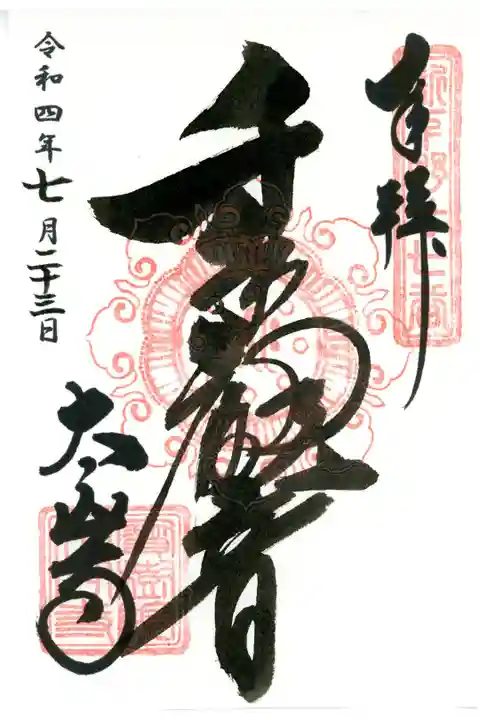 奉拝
千手観音
令和四年七月二十三日
太山寺